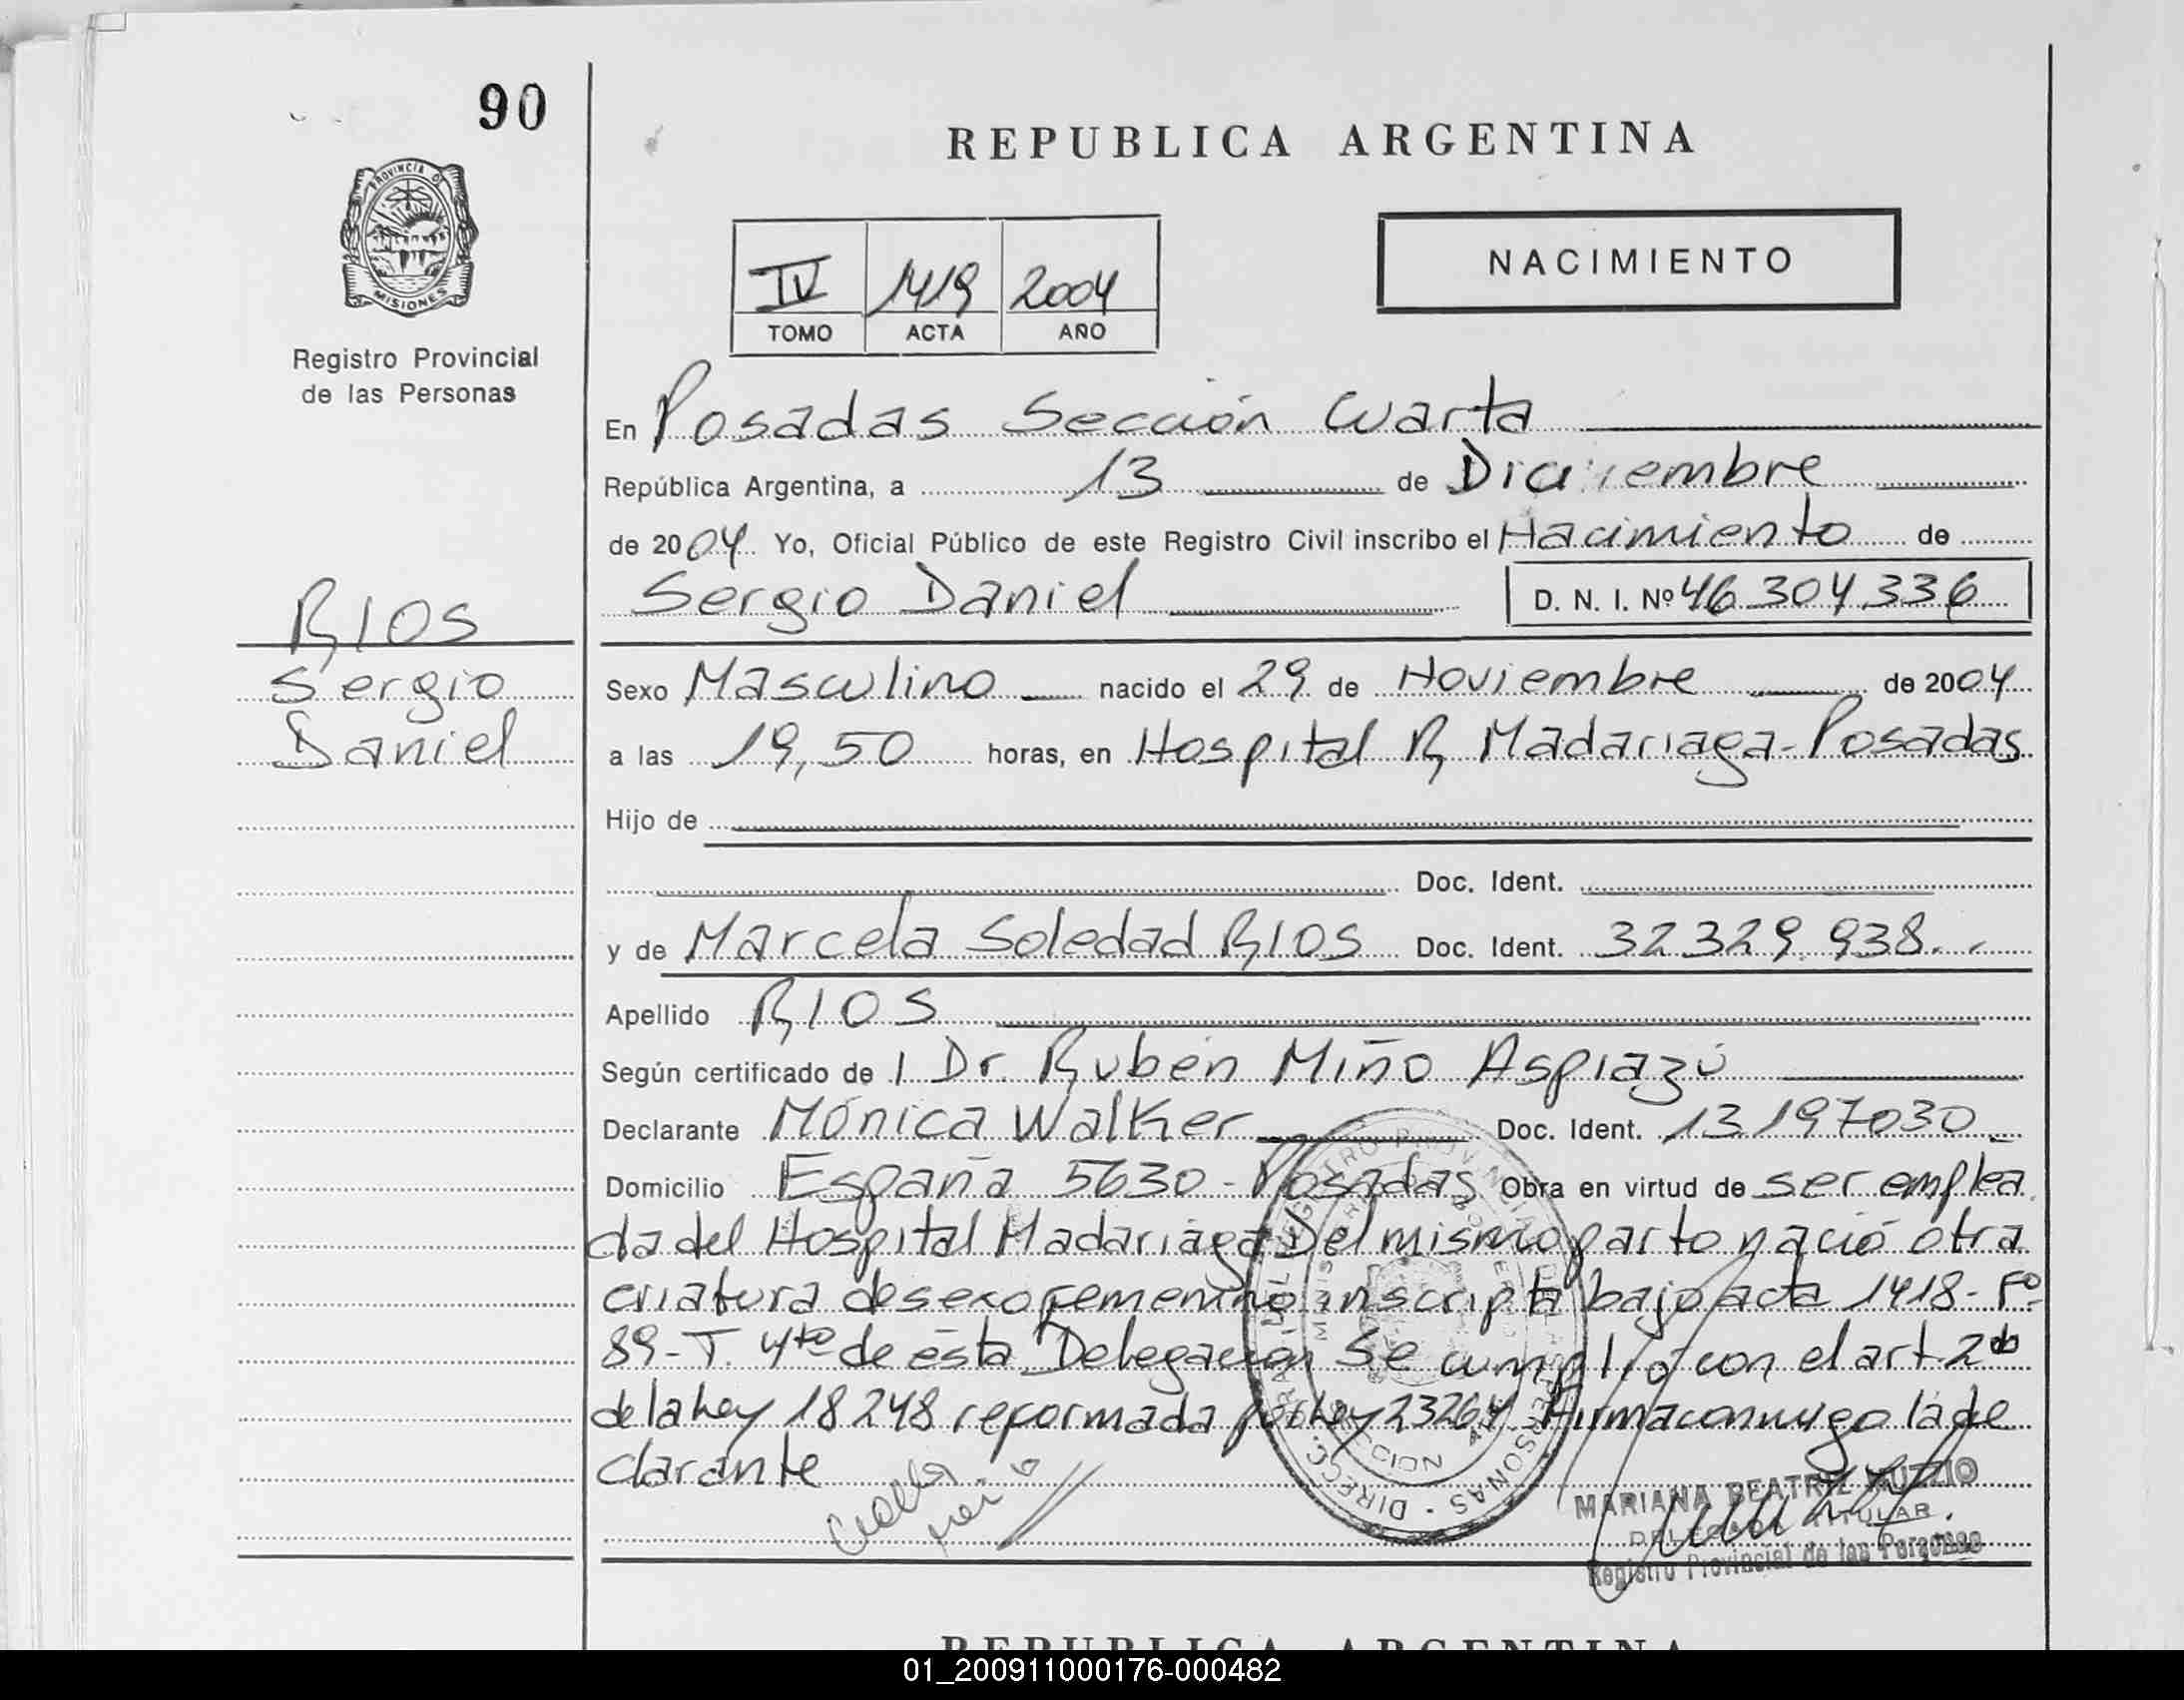 90
REPUBLICA ARGENTINA
PROVINCIA DE
MISIONES
NACIMIENTO
IV 1419 2004
TOMO ACTA AÑO
Registro Provincial
de las Personas
En Posadas Sección Cuarta
República Argentina, a 13 de Diciembre
de 2004 Yo, Oficial Público de este Registro Civil inscribo el Nacimiento de
Sergio Daniel D. N. I. Nº 46 304 336
RIOS
Sergio
Daniel
Sexo Masculino nacido el 29 de Noviembre de 2004
a las 19,50 horas, en Hospital R Madariaga - Posadas
Hijo de
Doc. Ident.
y de Marcela Soledad RIOS Doc. Ident. 32 329 938
Apellido RIOS
Según certificado de l Dr. Rubén Miño Aspiazú
Declarante Mónica Walker Doc. Ident. 13 197030
Domicilio España 5630 - Posadas Obra en virtud de ser emplea
da del Hospital Madariaga Del mismo parto nació otra
criatura de sexo femenino inscripta bajo acta 1418 - Fº
89 - T. 4to de ésta Delegación Se cumplió con el art 2do
de la Ley 18248 reformada por Ley 23264 Firma conmigo la de
clarante
MARIANA BEATRIZ MUZZIO
DELEGADA TITULAR
Registro Provincial de las Personas
REPUBLICA ARGENTINA
01_200911000176-000482